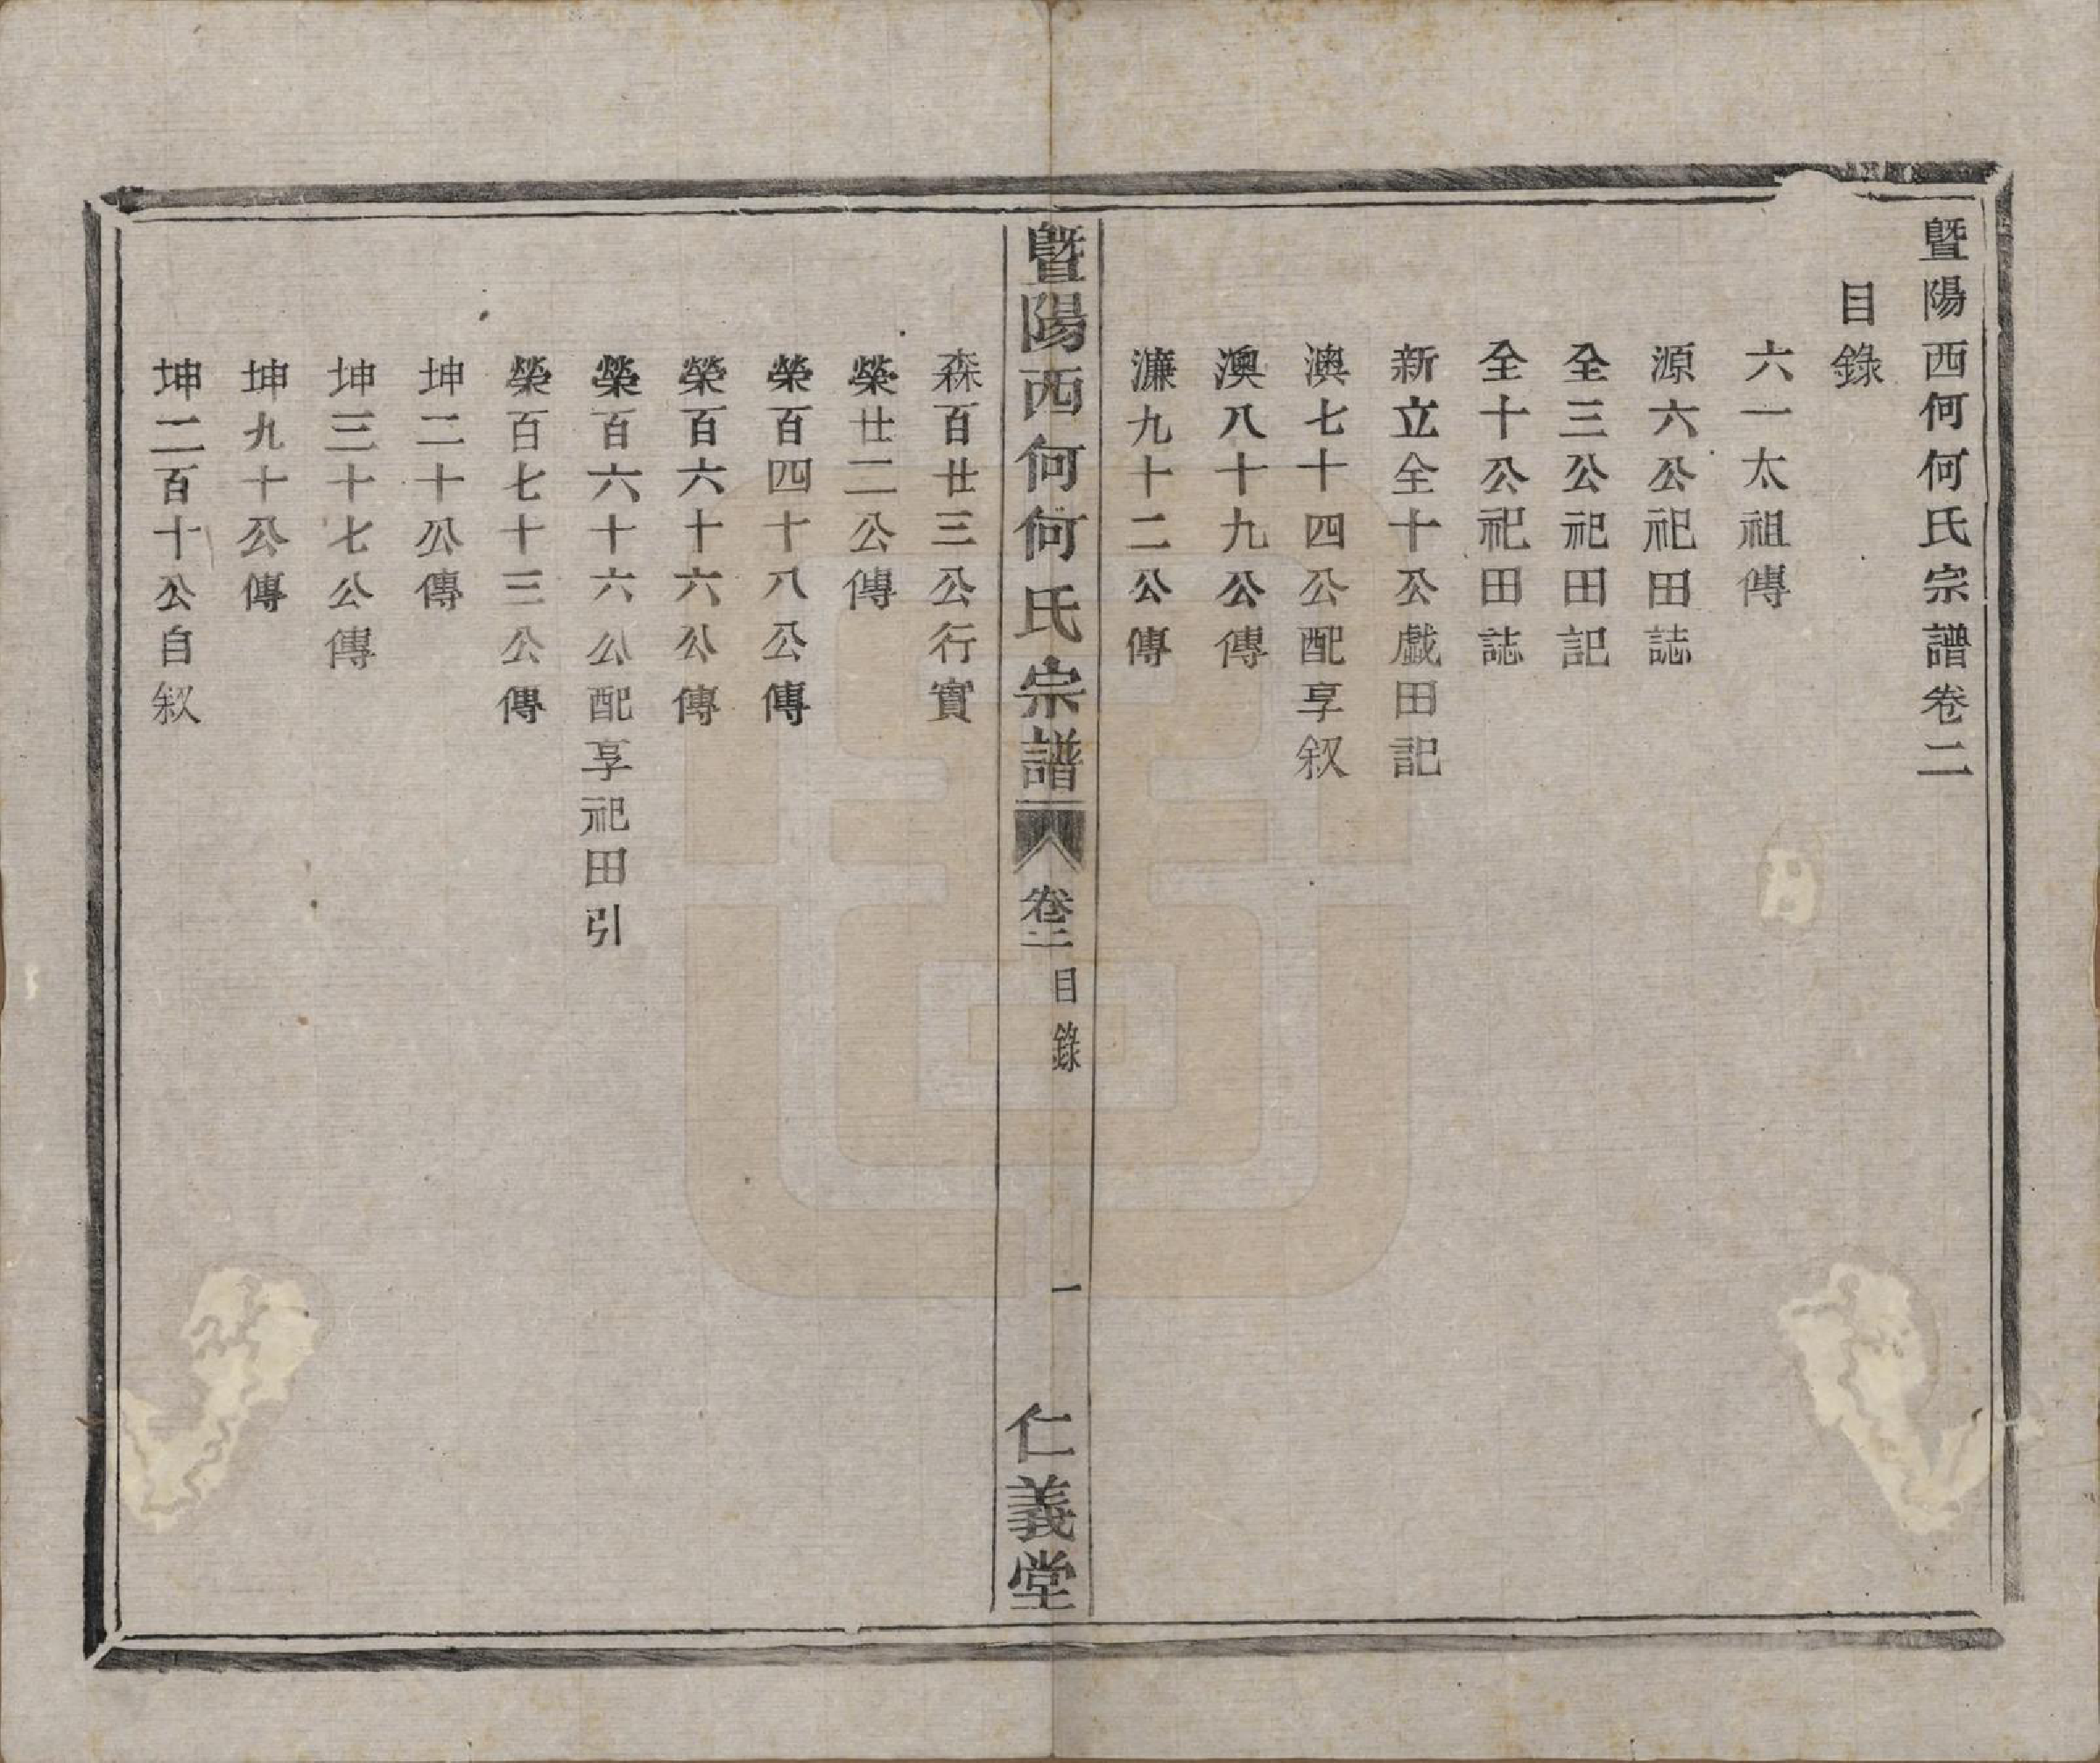 暨陽西何何氏宗譜卷二
目錄
六一太祖傳
源六公祀田誌
全三公祀田記
全十公祀田誌
新立全十公戲田記
澳七十四公配享叙
澳八十九公傳
濂九十二公傳
暨陽西何何氏宗譜 卷二 目錄 一 仁義堂
森百廿三公行實
榮廿二公傳
榮百四十八公傳
榮百六十六公傳
榮百六十六公配享祀田引
榮百七十三公傳
坤二十公傳
坤三十七公傳
坤九十公傳
坤二百十公自叙